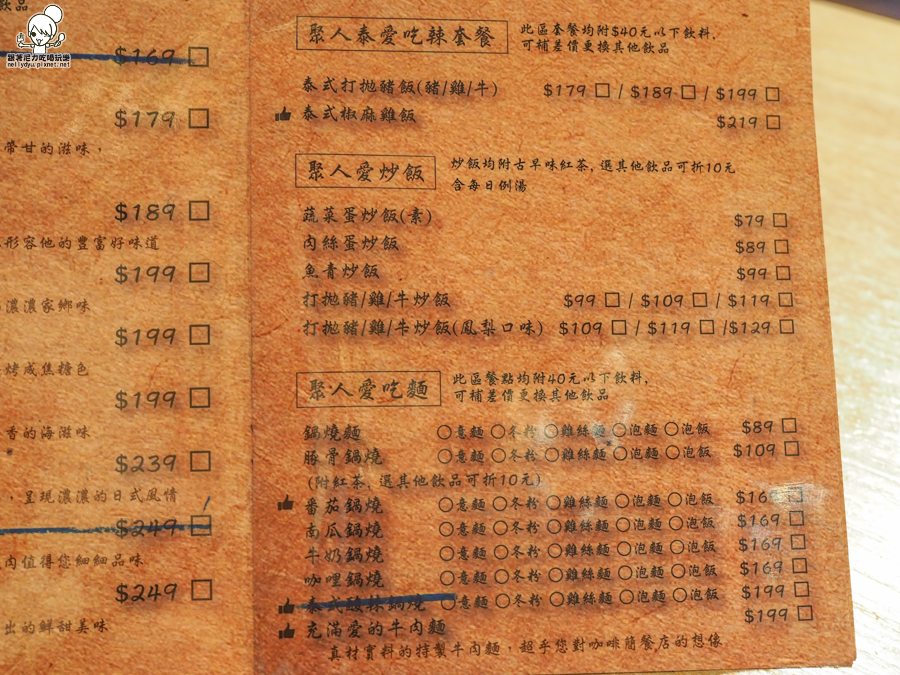 飲品
跟著尼力吃喝玩樂
nellydyu.pixnet.net
$169 □
$179 □
帶甘的滋味，
$189 □
形容他的豐富好味道
$199 □
濃濃家鄉味
$199 □
烤成焦糖色
$199 □
香的海滋味
$239 □
，呈現濃濃的日式風情
$249 □
肉值得您細細品味
$249 □
出的鮮甜美味
聚人泰愛吃辣套餐
此區套餐均附$40元以下飲料,
可補差價更換其他飲品
泰式打拋豬飯(豬/雞/牛) $179 □ / $189 □ / $199 □
泰式椒麻雞飯 $219 □
聚人愛炒飯
炒飯均附古早味紅茶, 選其他飲品可折10元
含每日例湯
蔬菜蛋炒飯(素) $79 □
肉絲蛋炒飯 $89 □
魚青炒飯 $99 □
打拋豬/雞/牛炒飯 $99 □ / $109 □ / $119 □
打拋豬/雞/牛炒飯(鳳梨口味) $109 □ / $119 □ /$129 □
聚人愛吃麵
此區餐點均附40元以下飲料,
可補差價更換其他飲品
鍋燒麵 ○意麵 ○冬粉 ○雞絲麵 ○泡麵 ○泡飯 $89 □
豚骨鍋燒 ○意麵 ○冬粉 ○雞絲麵 ○泡麵 ○泡飯 $109 □
(附紅茶, 選其他飲品可折10元)
番茄鍋燒 ○意麵 ○冬粉 ○雞絲麵 ○泡麵 ○泡飯 $169 □
南瓜鍋燒 ○意麵 ○冬粉 ○雞絲麵 ○泡麵 ○泡飯 $169 □
牛奶鍋燒 ○意麵 ○冬粉 ○雞絲麵 ○泡麵 ○泡飯 $169 □
咖哩鍋燒 ○意麵 ○冬粉 ○雞絲麵 ○泡麵 ○泡飯 $169 □
泰式酸辣鍋燒 ○意麵 ○冬粉 ○雞絲麵 ○泡麵 ○泡飯 $199 □
充滿愛的牛肉麵 $199 □
真材實料的特製牛肉麵，超乎您對咖啡簡餐店的想像